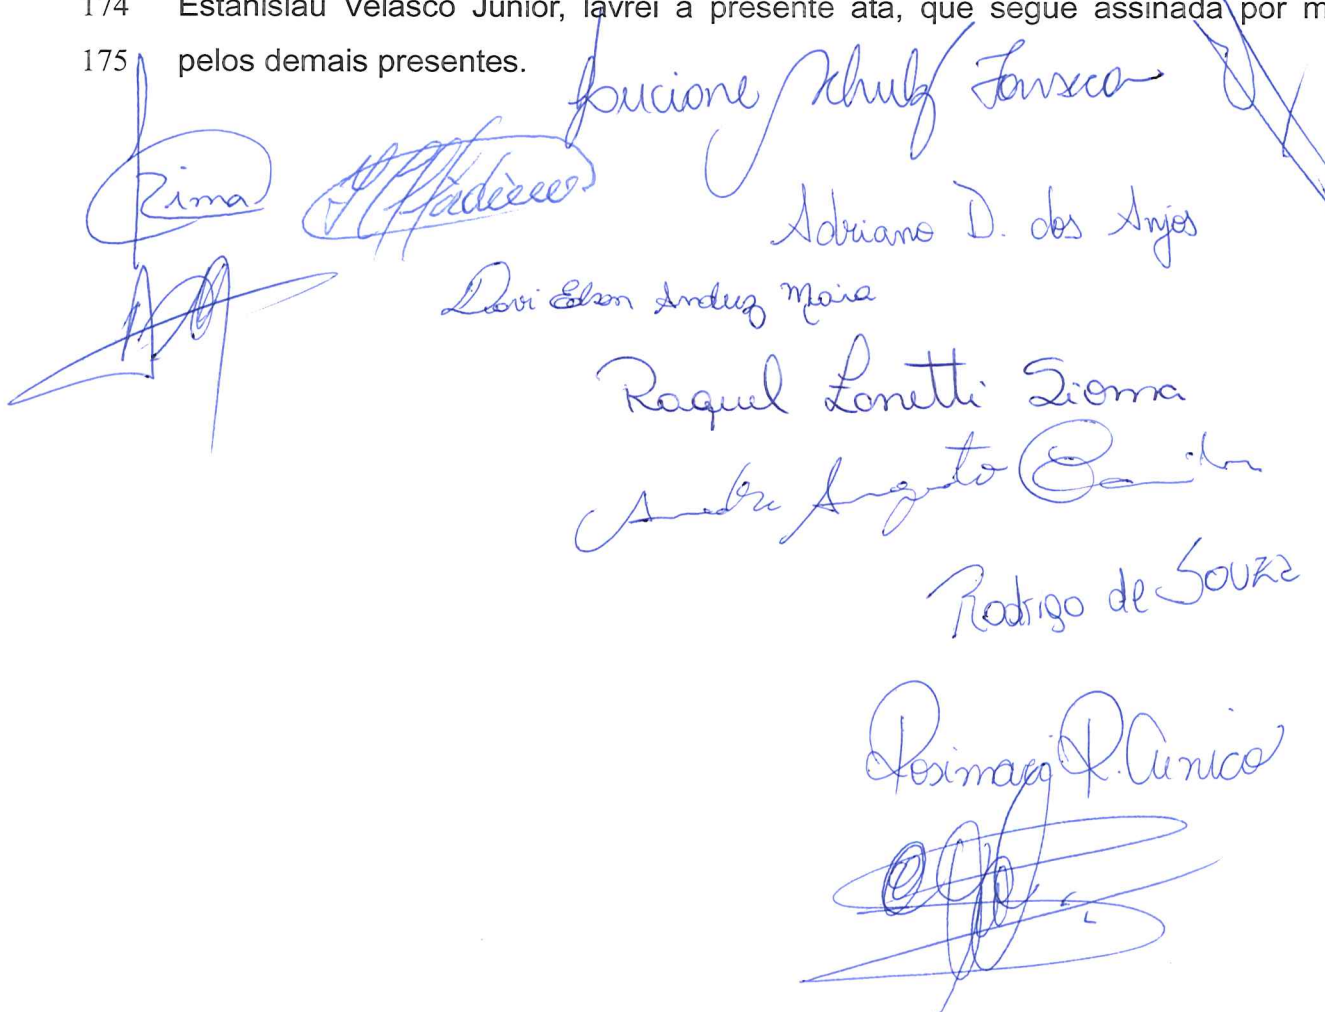 174 Estanislau Velasco Junior, lavrei a presente ata, que segue assinada por m
175 pelos demais presentes.
Lucione Schulz Fonseca
Zima
Adriano D. dos Anjos
Davi Edson Anduz Maia
Raquel Zanetti Sioma
Andre Augusto
Rodrigo de Souza
Rosimary R. Cunico